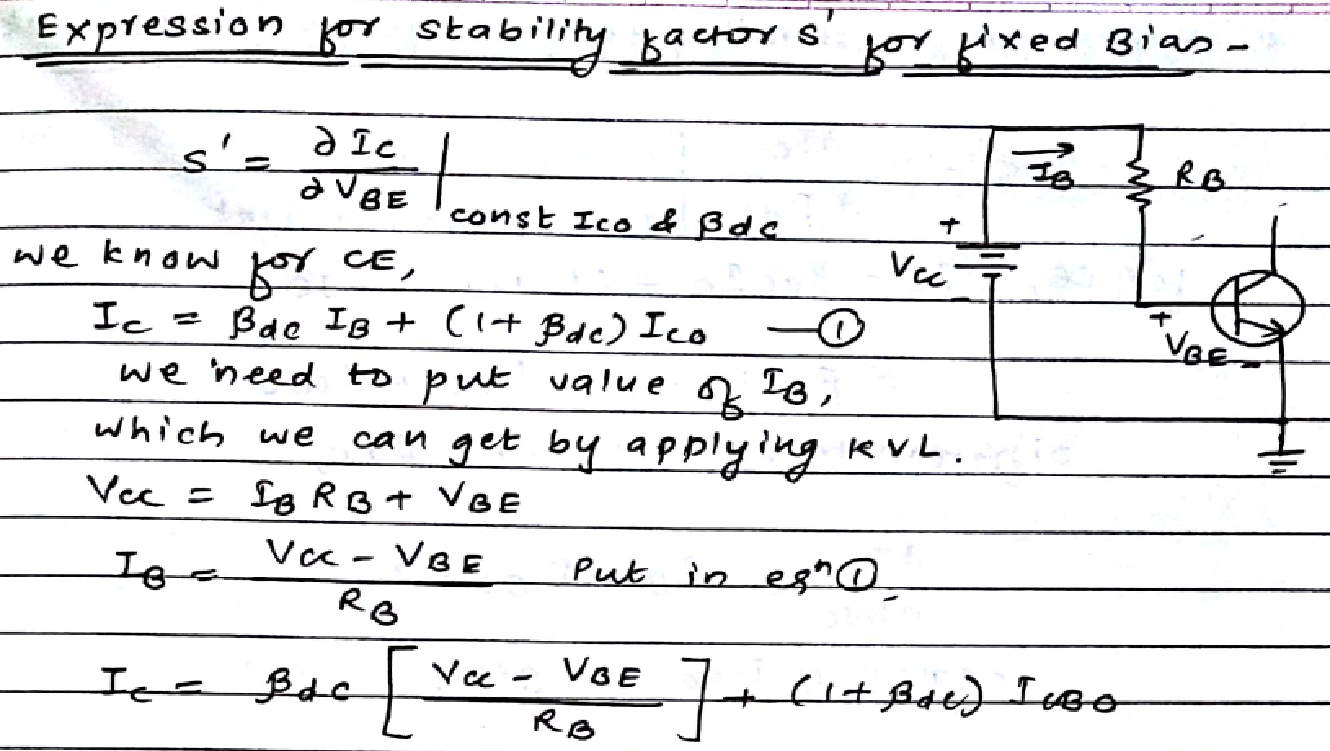 Expression for stability factor s' for fixed Bias -
s' = ∂Ic / ∂VBE | const Ico & βdc
we know for CE,
Ic = βdc IB + (1+ βdc) Ico — ①
we need to put value of IB,
which we can get by applying KVL.
Vcc = IB RB + VBE
IB = Vcc - VBE / RB Put in eqⁿ ①
Ic = βdc [ Vcc - VBE / RB ] + (1+ βdc) ICBO
IB
RB
+
Vcc
-
+
VBE -